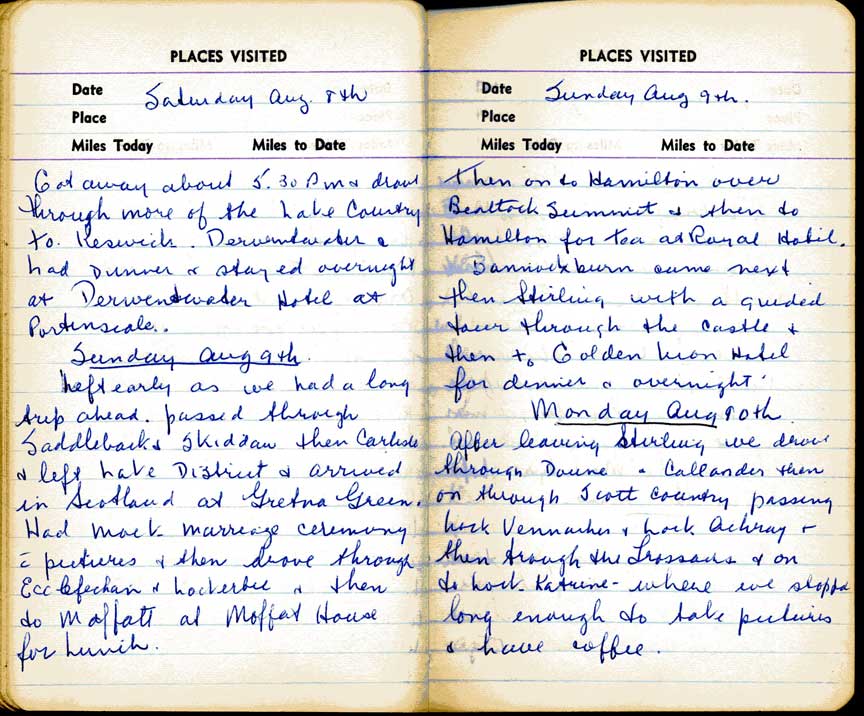 PLACES VISITED
Date Saturday Aug. 8th
Place
Miles Today Miles to Date
Got away about 5.30 P m & drove
through more of the Lake Country
to. Keswick. Derwentwater &
had Dinner & stayed overnight
at Derwentwater Hotel at
Portinscale..
Sunday Aug 9th.
Left early as we had a long
trip ahead. passed through
Saddleback & Skiddaw then Carlisle
& left Lake District & arrived
in Scotland at Gretna Green.
Had mock marriage ceremony
c̄ pictures & then drove through
Ecclefechan & Lockerbie & then
to Moffatt at Moffat House
for Lunch.
PLACES VISITED
Date Sunday Aug 9th.
Place
Miles Today Miles to Date
Then on to Hamilton over
Beattock Summit & then to
Hamilton for tea at Royal Hotel.
Bannockburn came next
then Stirling with a guided
tour through the castle &
then to Golden Lion Hotel
for dinner & overnight.
Monday Aug 10th
After leaving Stirling we drove
through Doune & Callander then
on through Scott Country passing
Lock Vennacher & Lock Achray &
then trough the Trossacks & on
to Lock Katrine - where we stopped
long enough to take pictures
& have coffee.